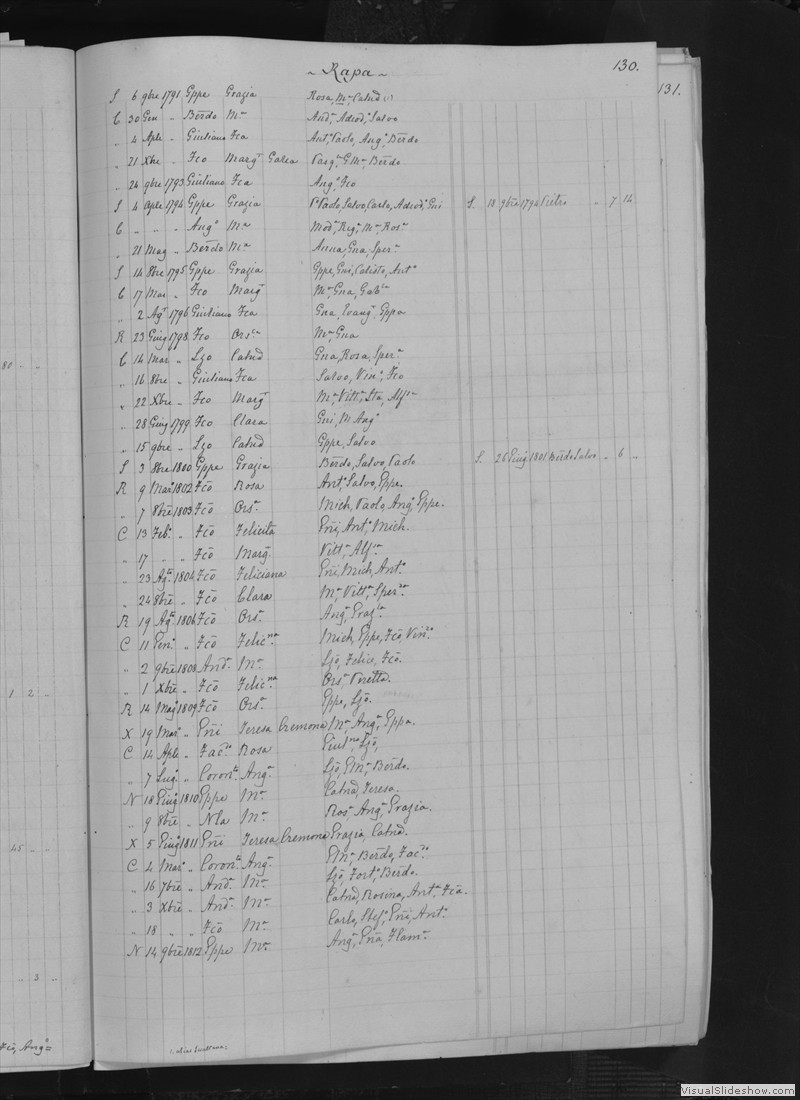 130.
131.
~ Rapa ~
S 6 9bre 1791 Gppe Grazia Rosa, Mª, Catnd (1)
C 30 Gen " Berdo Mª And, Adeod, Salvo
" 4 Aple " Giuliano Fca Antº, Paolo, Angº, Berdo
" 21 Xbre " Fco Margª Galea Pasqª, G Mª, Berdo
" 24 9bre 1793 Giuliano Fca Angº, Fco
S 4 Aple 1794 Gppe Grazia Paolo, Salvo, Carlo, Adeod, Gni S. 18 9bre 1794 Pietro " 7 14
C " " " Angº Mª Modª, Regª, Mª, Rosª
" 21 Mag " Berdo Mª Anna, Gna, Sperª
S 14 8bre 1795 Gppe Grazia Gppe, Gni, Calisto, Antº
C 17 Mar " Fco Margª Mª, Gna, Gabla
" 2 Agº 1796 Giuliano Fca Gna, Evangª, Gppa
R 23 Giug 1798 Fco Orsla Mª, Gna
80 " "
C 14 Mar " Lzo Catnd Gna, Rosa, Sperª
" 16 8bre " Giuliano Fca Salvo, Vinº, Fco
" 22 Xbre " Fco Margª Mª, Vittª, Ita, Alfna
" 28 Giug 1799 Fco Clara Gni, M Angº
" 15 9bre " Lzo Catnd Gppe, Salvo
S 3 8bre 1800 Gppe Grazia Berdo, Salvo, Paolo S. 26 Giug 1801 Berdo Salvo " 6 "
R 9 Marº 1802 Fco Rosa Antº, Salvo, Gppe.
" 7 8bre 1803 Fco Orsª Mich, Paolo, Angº, Gppe.
C 13 Febº " Fco Felicita Gni, Antº, Mich.
" 17 " " Fco Margª Vittª, Alfna
" 23 Agto 1804 Fco Feliciana Gni, Mich, Antº
" 24 8bre " Fco Clara Mª, Vittª, Sperza
R 19 Agto 1806 Fco Orsª Angª, Grazla
C 11 Genº " Fco Felicna Mich, Gppe, Fco, Vinzo
" 2 9bre 1808 Andª Mª Lzo, Felice, Fco.
1 2 "
" 1 Xbre " Fco Felicna Orsª, Veretta.
R 14 Magº 1809 Fco Orsª Gppe, Lzo.
X 19 Marº " Gni Teresa Cremona Mª, Angª, Gppa.
C 14 Aple " Faco Rosa Giulno, Lzo,
" 7 Lugº " Coronto Angª Lzo, G Mª, Berdo.
N 18 Giugº 1810 Gppe Mª Catnd, Teresa.
" 9 8bre " Nla Mª Rosª, Angª, Grazia.
45 " "
X 5 Giugº 1811 Gni Teresa Cremona Grazia, Catnd.
C 4 Marº " Coronto Angª G Mª, Berdo, Faco
" 16 7bre " Andª Mª Lzo, Fortº, Berdo.
" 3 Xbre " Andª Mª Catnd, Rosina, Antª, Fca.
" 18 " " Fco Mª Carlo, Stefº, Gni, Antº
N 14 9bre 1812 Gppe Mª Angª, Gna, Flamª
" 3 "
Fco, Angª =
VisualSlideshow.com